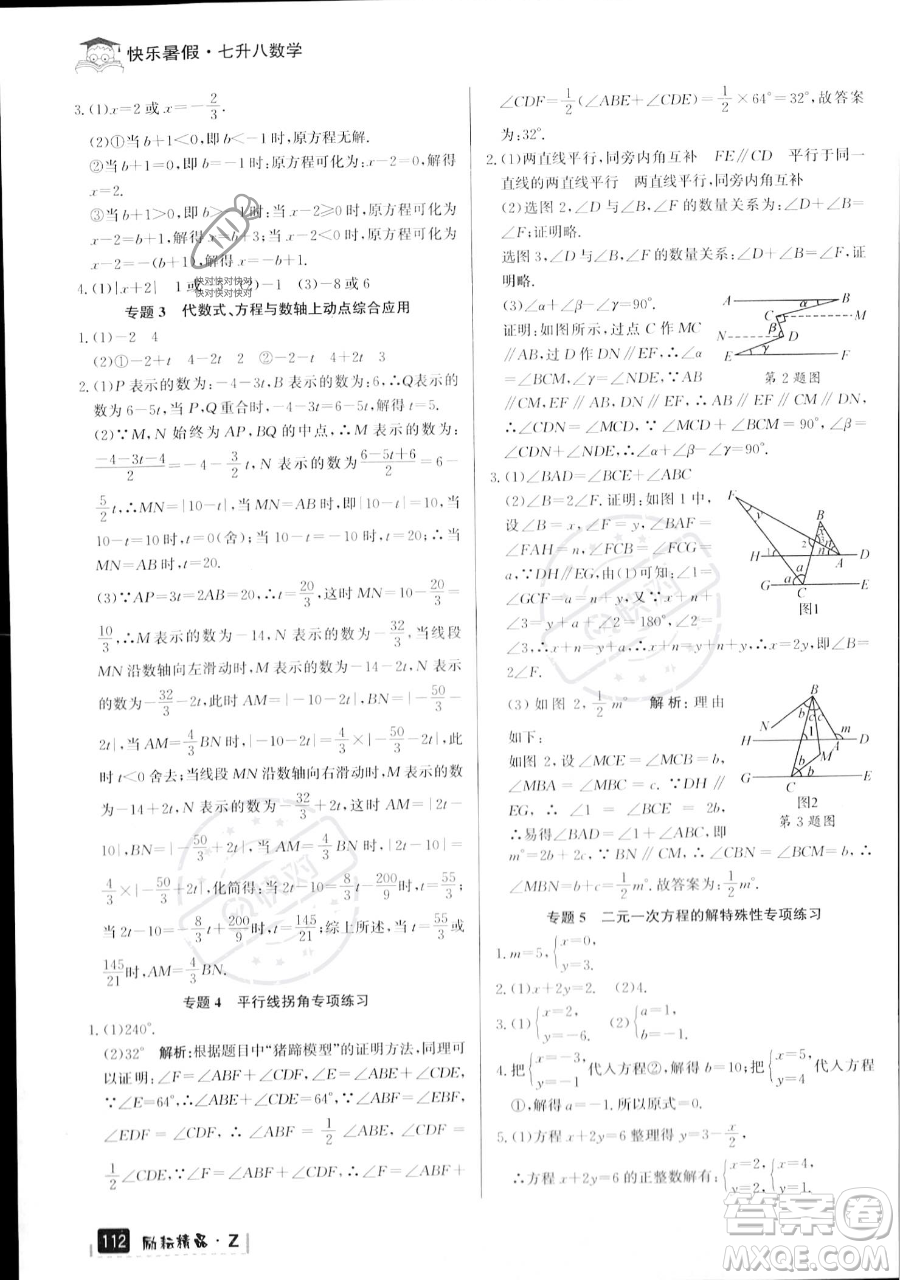 快乐暑假·七升八数学
3.(1)x=2或x=-2/3.
(2)①当b+1<0,即b<-1时,原方程无解.
②当b+1=0,即b=-1时;原方程可化为,解得
x=2.
③当b+1>0,即b>-1时;当x-2≥0原方程可化为
x-2=b+1,解得x=b+3;当x-2<0,原方程可化为
x-2=-(b+1),解得x=-b+1.
4.(1)|x+2| 1或 (2)-1 (3)-8或6
专题3 代数式、方程与数轴上动点综合应用
1.(1)-2 4
(2)①-2+t 4-2t ②2 -2+t 4-2t
2.(1)P表示的数为:-4-3t,B表示的数为:6,∴Q表示的
数为6-5t,当P,Q重合时,-4-3t=6-5t,解得t=5.
(2)∵M,N始终为AP,BQ的中点,∴M表示的数为:
(-4-3t-4)/2=-4-3/2t,N表示的数为(6-5t+6)/2=6-
5/2t,∴MN=|10-t|,当MN=AB时,即|10-t|=10,当
10-t=10时,t=0(舍);当10-t=-10时,t=20,∴当
MN=AB时,t=20.
(3)∵AP=3t=2|10-t|,∴t=20/3,这时MN=|10-20/3|=
10/3,∴M表示的数为-14,N表示的数为-32/3,当线段
MN沿数轴向左滑动时,M表示的数为-14-2t,N表示
的数为-32/3-2t,此时AM=|-10-2t|,BN=|-50/3-
2t|,当AM=4/3BN时,|-10-2t|=4/3×|-50/3-2t|,此
时t<0舍去;当线段MN沿数轴向右滑动时,M表示的数
为-14+2t,N表示的数为-32/3+2t,此时AM=|-10+
2t|,BN=|-50/3+2t|,∴当AM=4/3BN时,|2t-10|=
4/3×|-50/3+2t|,化简得:当2t-10=8/3t-200/9时,t=55/3;
当2t-10=-8/3t+200/9时,t=145/21;综上所述,当t=55/3或
145/21时,AM=4/3BN.
专题4 平行线拐角专项练习
1.(1)240°.
(2)32° 解析:根据题目中“猪蹄模型”的证明方法,同理可
以证明:∠F=∠ABF+∠CDF,∠E=∠ABE+∠CDE,
∵∠E=64°,∴∠ABE+∠CDE=64°,∵∠ABF=∠EBF,
∠EDF=∠CDF,∴∠ABF=1/2∠ABE,∠CDF=
1/2∠CDE,∵∠F=∠ABF+∠CDF,∴∠F=∠ABF+
∠CDF=1/2(∠ABE+∠CDE)=1/2×64°=32°,故答案
为:32°.
2.(1)两直线平行,同旁内角互补 FE∥CD 平行于同一
直线的两直线平行 两直线平行,同旁内角互补
(2)选图2,∠D与∠A的数量关系为:∠D+∠A=
∠F;证明略.
选图3,∠D与∠A的数量关系为:∠D=∠A+∠F;
证明略.
(3)∠α+∠β-∠γ=90°.
证明:如图所示,过点C作MC
∥AB,过点D作DN∥AB,∴∠α
=∠BCM,∠γ=∠NDE,∵AB
∥CM,AB∥DN,AB∥EF,∴CM∥DN∥EF,∴∠DCM
=∠CDN,∵∠MCD+∠BCM=90°,∴∠α+∠β=
∠BCM+∠CDN+∠NDE=∠BCM+∠BCM+∠γ=90°,
∴∠α+∠β-∠γ=90°.
A
C
M
β
N
D
γ
E
F
第2题图
3.(1)∠BAD=∠BCE+∠ABC
(2)∠B=2∠F.证明:如图1中,
设∠B=x,∠F=y,∠BAF=
∠FAH=n,∠FCB=∠FCG=
a,由(1)可知:∠1=
∠GCF=y+a,又∵∠x+
∠2+n=∠y+∠2+a=180°,∴x+n=y+a,
∵2n+∠1+∠2=180°,
∴x=y+y,∴x=2y,即∠B=
2∠F.
图1
(3)如图2,1/2m° 解析:理由
如下:
如图2,∠MCE=∠MCB=b,
∠MBA=∠MBC=c.∵DH∥
EG,∴∠1=∠BCE=2b,
∴易得∠DAB=∠1+∠ABC,
m°=2b+2c,∵BN∥CM,∴∠NBC=∠BCM=b,
∴∠MBN=b+c=1/2m°.故答案为:1/2m°.
图2
第3题图
专题5 二元一次方程的解特殊性专项练习
1.m=5,{x=0, y=3.或{x=5, y=0.
2.(1)x+2y=6. (2)4.
3.(1){x=2, y=-6. (2){a=1, b=-1.
4.把{x=-3, y=-1代入方程②,解得b=10;把{x=5, y=4代入方程
①,解得a=-1.所以原式=0.
5.(1)方程x+2y=6整理得y=3-x/2,
∴方程x+2y=6的正整数解有:{x=2, y=2,{x=4, y=1.
112
励耘精品·Z
快对
答案圈
MXQE.COM